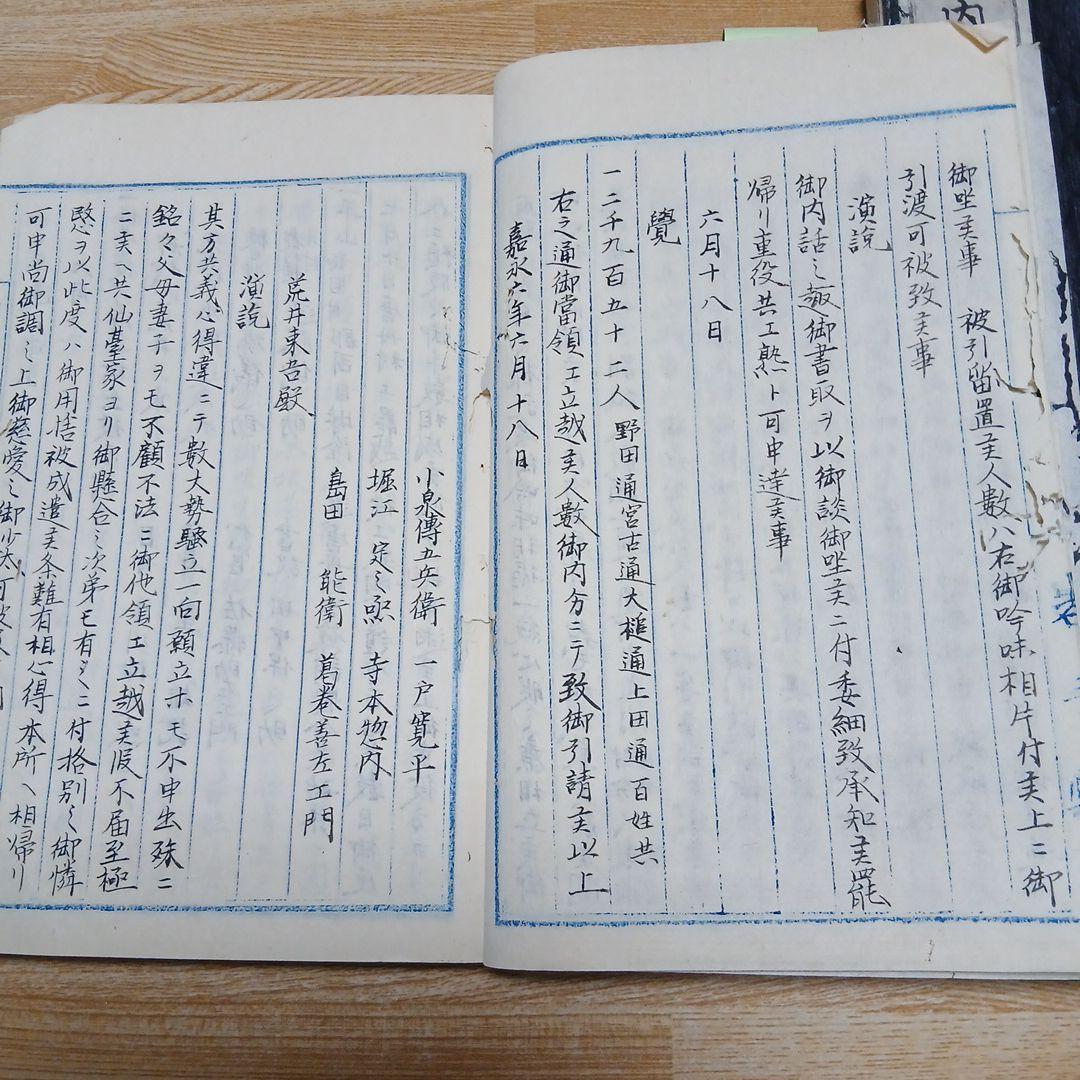 御坐候事　被引留置候人数ハ右御吟味相片付候上ニ御
引渡可被致候事
演説
御内話之趣御書取ヲ以御談御坐候ニ付委細致承知候罷
帰リ重役共エ熟ト可申達候事
六月十八日
覺
一二千九百五十二人　野田通宮古通大槌通上田通百姓共
右之通御當領エ立越候人数御内分ニテ致御引請候以上
嘉永六年六月十八日
小泉傳五兵衛　一戸寛平
堀江　定之丞　寺本惣内
島田　能衛　葛巻善左エ門
荒井東吾殿
演説
其方共義心得違ニテ数大勢騒立一向願立ホモ不申出殊ニ
銘々父母妻子ヲモ不顧不法ニ御他領エ立越候段不届至極
ニ候ヘ共仙臺家ヨリ御懸合之次第モ有之ニ付格別之御憐
愍ヲ以此度ハ御用捨被成遣候条難有相心得本所ヘ相帰リ
可申尚御調之上御慈愛之御沙汰可被
内